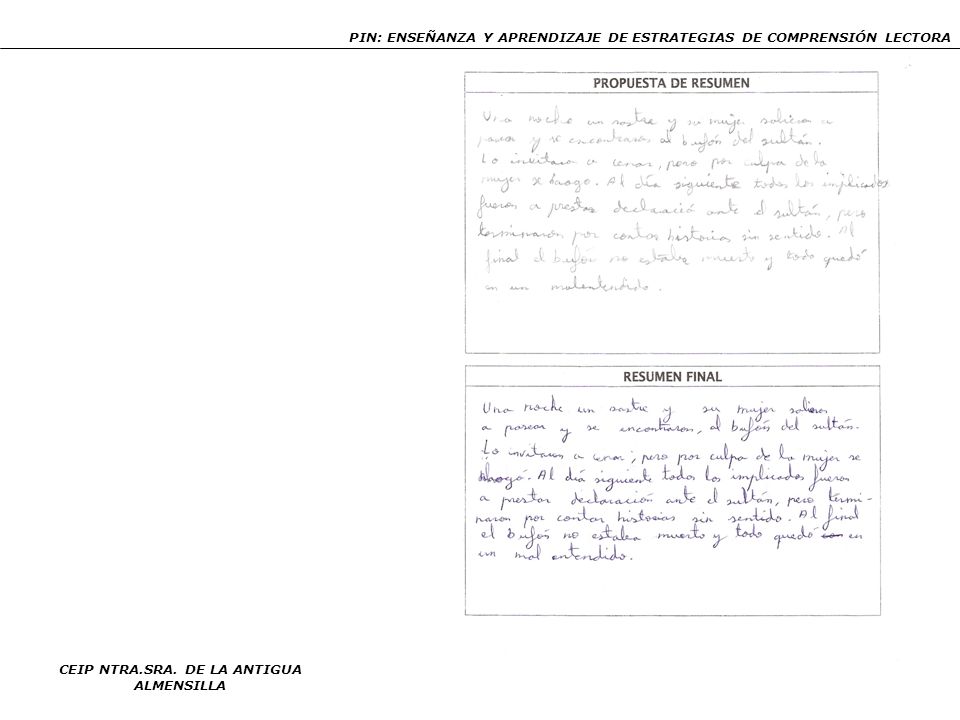 PIN: ENSEÑANZA Y APRENDIZAJE DE ESTRATEGIAS DE COMPRENSIÓN LECTORA
PROPUESTA DE RESUMEN
Una noche un sastre y su mujer salieron a
pasear y se encontraron al bufón del sultán.
Lo invitaron a cenar, pero por culpa de la
mujer se haogo. Al día siguiente todos los implicados
fueron a prestar declaració ante el sultán, pero
terminaron por contar historias sin sentido. Al
final el bufón no estaba muerto y todo quedó
en un malentendido.
RESUMEN FINAL
Una noche un sastre y su mujer salieron
a pasear y se encontraron, al bufón del sultán.
Lo invitaron a cenar, pero por culpa de la mujer se
Al día siguiente todos los implicados fueron
a prestar declaración ante el sultán, pero termi-
naron por contar historias sin sentido. Al final
el bufón no estaba muerto y todo quedó en
un mal entendido.
CEIP NTRA.SRA. DE LA ANTIGUA
ALMENSILLA